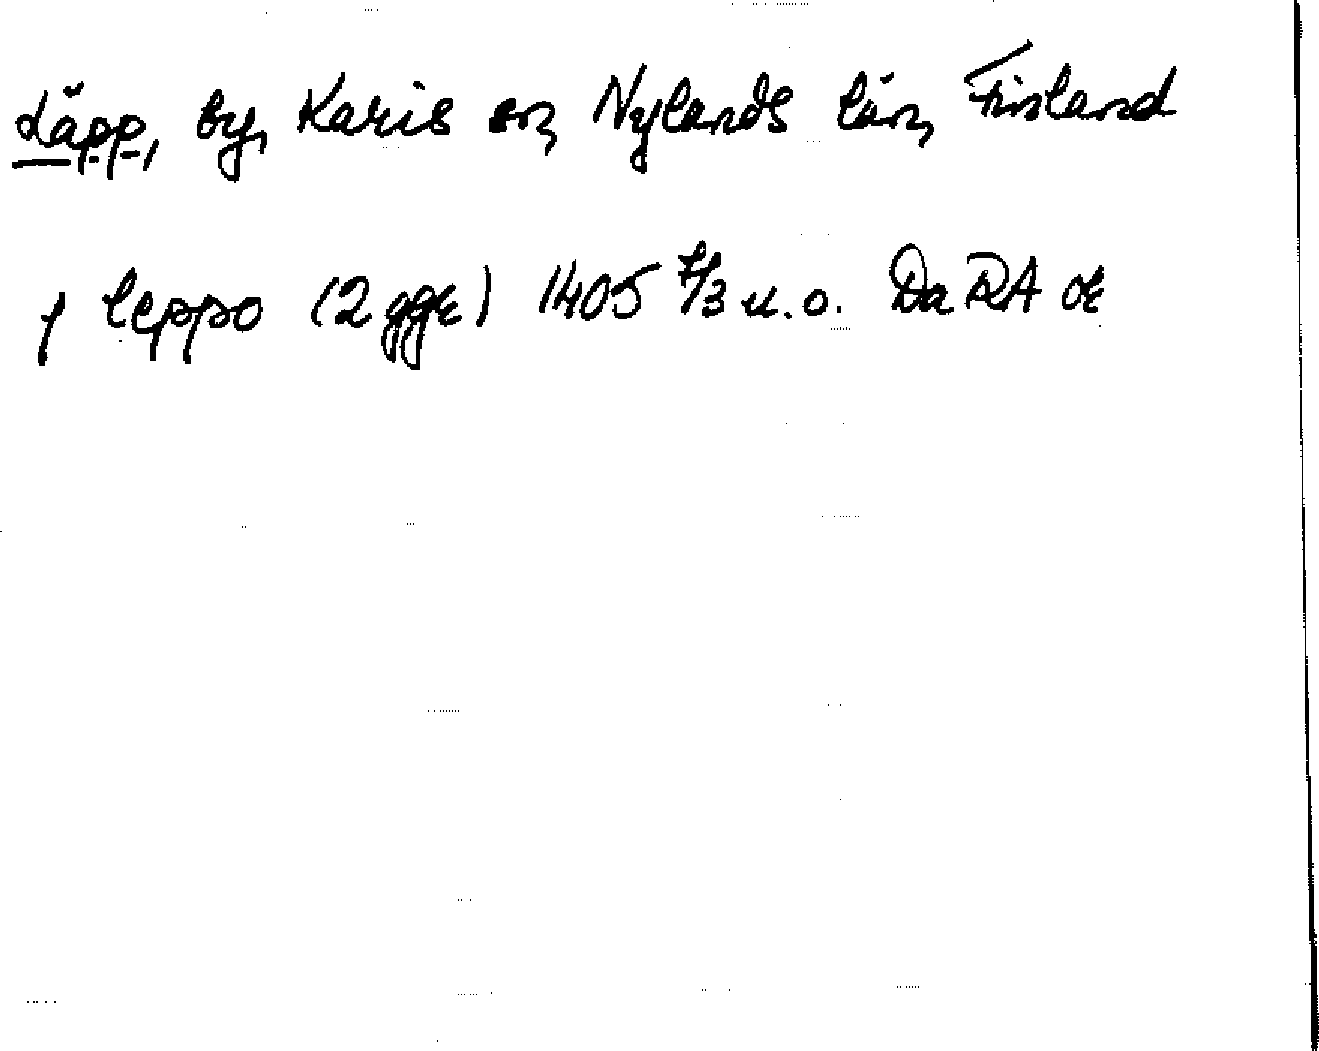 Läpp, by, Karis sn, Nylands län, Finland
j leppo (2 ggr) 1405 7/3 u.o. Da RA or